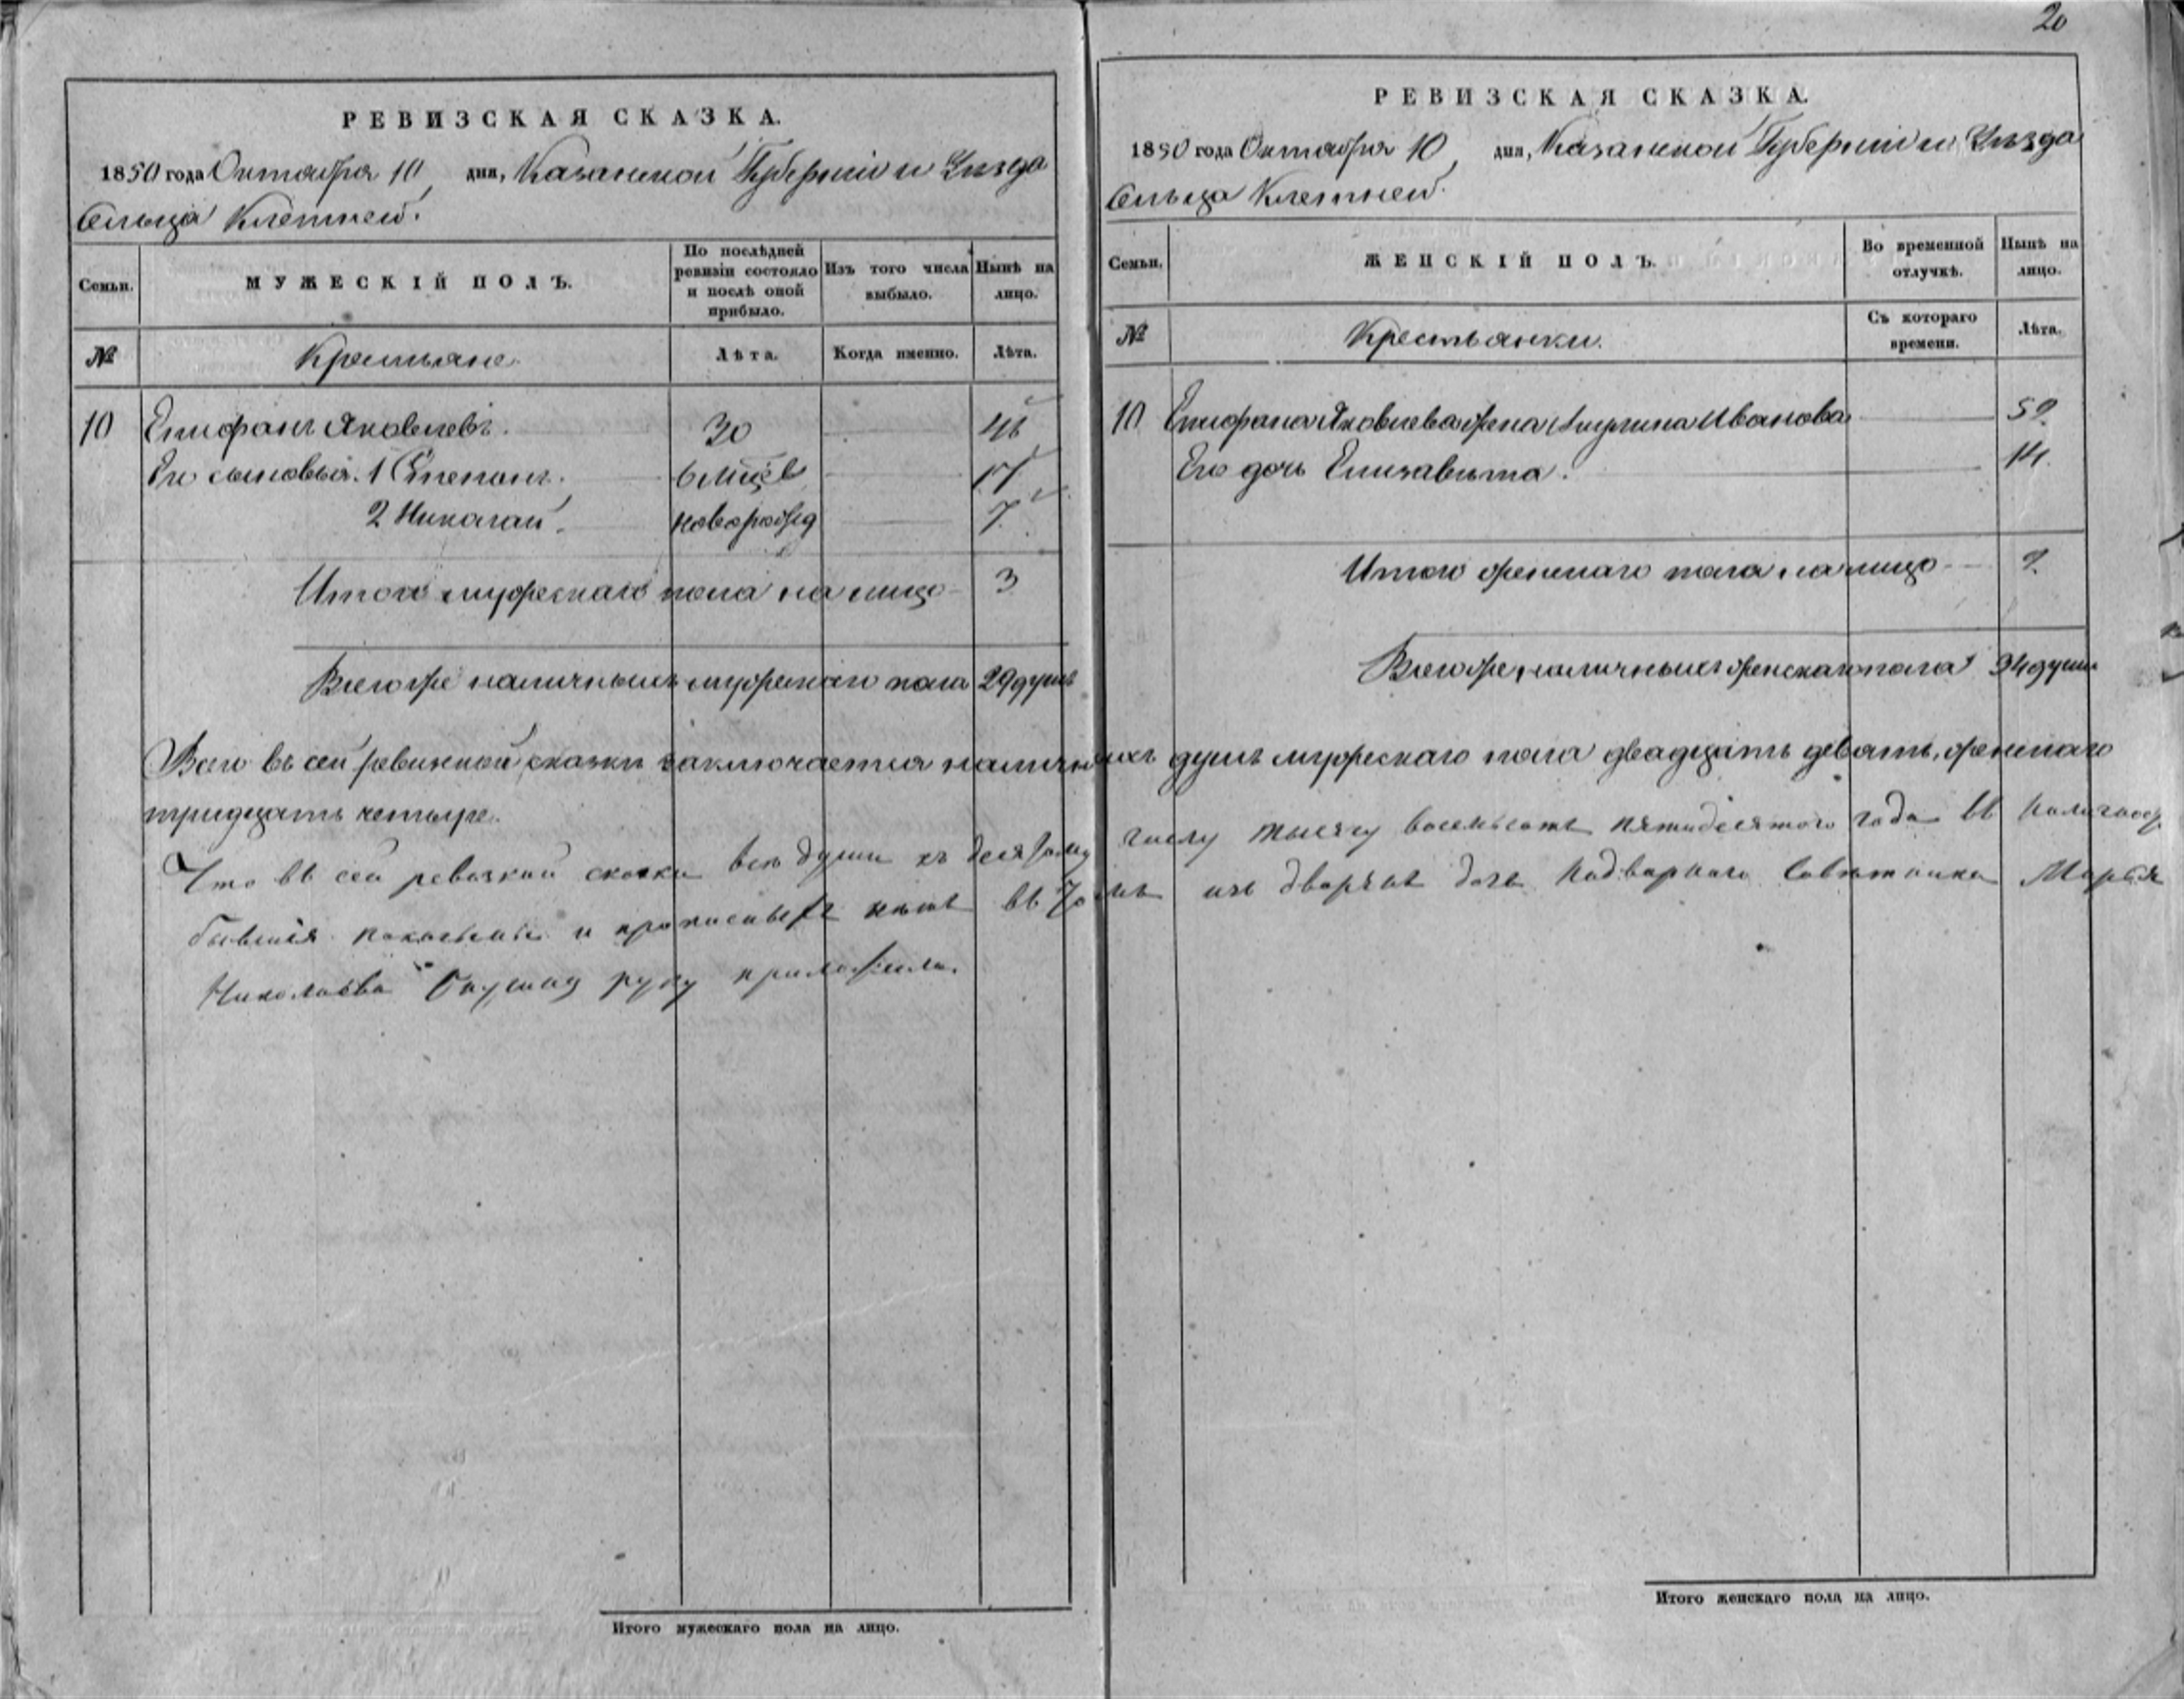 РЕВИЗСКАЯ СКАЗКА.
1850 года Октября 10 дня, Казанской Губерніи и Уѣзда
Сельца Клетней.
Семьи.
МУЖЕСКІЙ ПОЛЪ.
По послѣдней ревизіи состояло и послѣ оной прибыло.
Изъ того числа выбыло.
Нынѣ на лицо.
№
Крестьяне.
Лѣта.
Когда именно.
Лѣта.
10 Епифанъ Яковлевъ. 30 46
Его сыновья. 1 Степанъ. 6 Мцев 17
2 Николай. новорожд 7
Итого мужескаго пола на лицо 3
Всего же наличныхъ мужескаго пола 29 душъ
20
РЕВИЗСКАЯ СКАЗКА.
1850 года Октября 10 дня, Казанской Губерніи и Уѣзда
Сельца Клетней.
Семьи.
ЖЕНСКІЙ ПОЛЪ.
Во временной отлучкѣ.
Нынѣ на лицо.
№
Крестьянки.
Съ котораго времени.
Лѣта.
10 Епифана Яковлева жена Иванова 52
Его дочь Елизавета. 14.
Итого женскаго пола на лицо 2
Всего же наличныхъ женскаго пола 34 души
Всего въ сей ревизской сказкѣ заключается наличныхъ душъ мужескаго пола двадцать девять, женскаго
тридцать четыре.
Что въ сей ревизкой сказки всѣ души къ десятому числу тысячу восемьсотъ пятидесятого года въ
бывшія показаны и нѣтъ въ томъ изъ дворянъ дочь надворнаго Совѣтника Марья
Николаева руку приложила.
Итого мужескаго пола на лицо.
Итого женскаго пола на лицо.